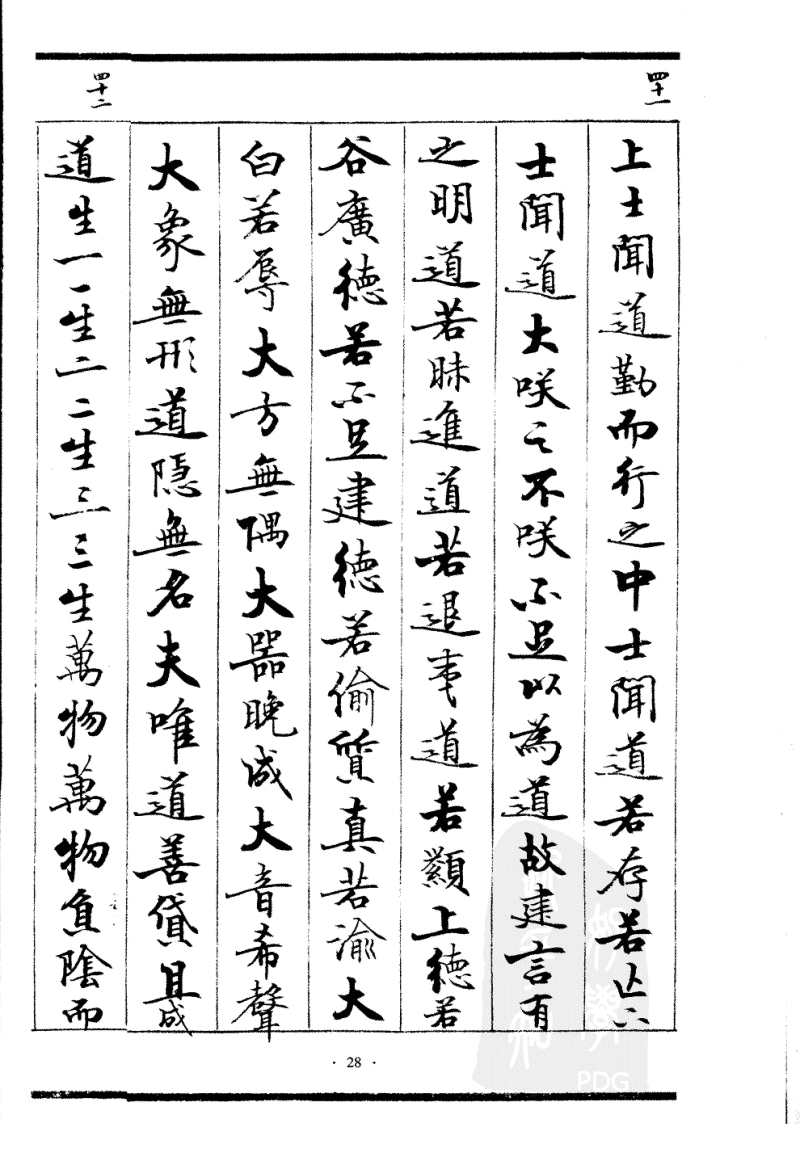 四十一
上士聞道勤而行之中士聞道若存若亡下
士聞道大咲之不咲不足以為道故建言有
之明道若昧進道若退夷道若纇上德若
谷廣德若不足建德若偷質真若渝大
白若辱大方無隅大器晚成大音希聲
大象無形道隱無名夫唯道善貸且成
四十二
道生一一生二二生三三生萬物萬物負陰而
· 28 ·
PDG